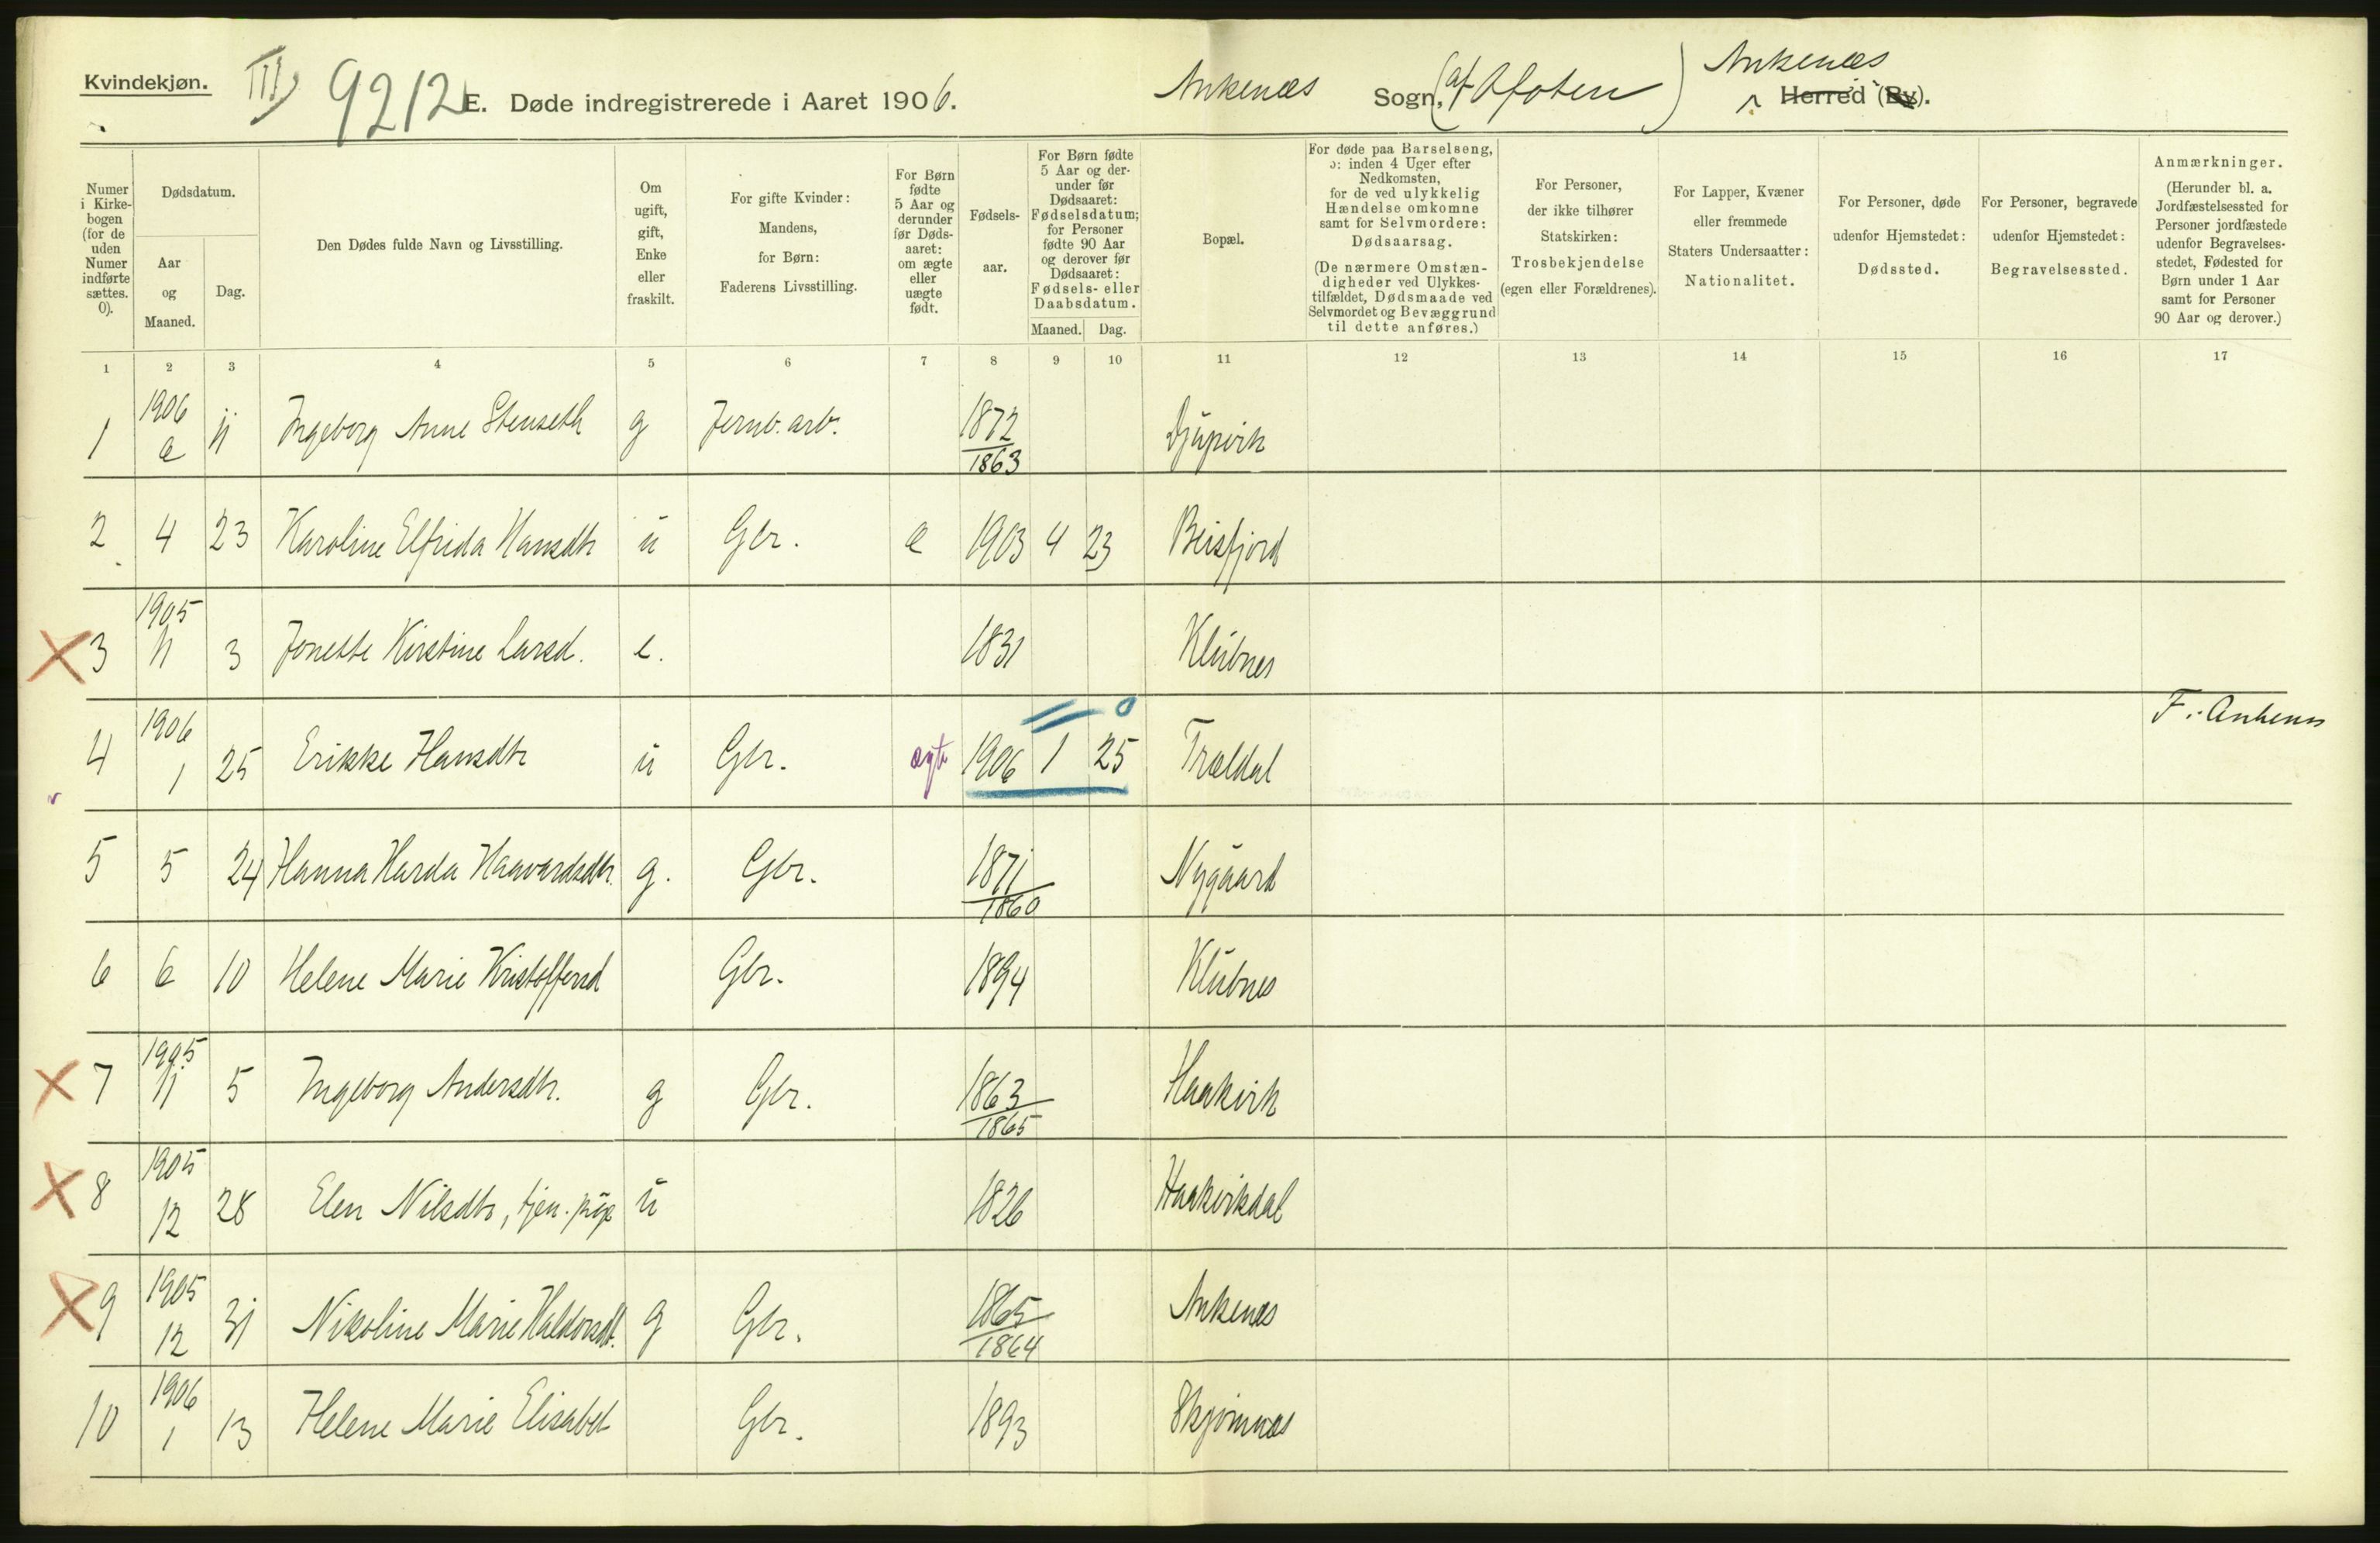 Kvindekjøn. III) 9212 E. Døde indregistrerede i Aaret 1906. Ankenæs Sogn, (af Ofoten) Ankenæs Herred (By).
Numer i Kirke-bogen (for de uden Numer indførte sættes. 0).
Dødsdatum.
Aar og Maaned.
Dag.
Den Dødes fulde Navn og Livsstilling.
Om ugift, gift, Enke eller fraskilt.
For gifte Kvinder: Mandens, for Børn: Faderens Livsstilling.
For Børn fødte 5 Aar og derunder før Døds-aaret: om ægte eller uægte født.
Fødsels-aar.
For Børn fødte 5 Aar og der-under før Dødsaaret: Fødselsdatum; for Personer fødte 90 Aar og derover før Dødsaaret: Fødsels- eller Daabsdatum.
Maaned. Dag.
Bopæl.
For døde paa Barselseng, ɔ: inden 4 Uger efter Nedkomsten, for de ved ulykkelig Hændelse omkomne samt for Selvmordere: Dødsaarsag. (De nærmere Omstæn-digheder ved Ulykkes-tilfældet, Dødsmaade ved Selvmordet og Bevæggrund til dette anføres.)
For Personer, der ikke tilhører Statskirken: Trosbekjendelse (egen eller Forældrenes).
For Lapper, Kvæner eller fremmede Staters Undersaatter: Nationalitet.
For Personer, døde udenfor Hjemstedet: Dødssted.
For Personer, begravede udenfor Hjemstedet: Begravelsessted.
Anmærkninger. (Herunder bl. a. Jordfæstelsessted for Personer jordfæstede udenfor Begravelses-stedet, Fødested for Børn under 1 Aar samt for Personer 90 Aar og derover.)
1 2 3 4 5 6 7 8 9 10 11 12 13 14 15 16 17
1 1906 6 11 Ingeborg Anne Stenseth g Jernb. arb. 1872 1863 Djupvik
2 4 23 Karoline Elfrida Hansdtr u Gbr. e 1903 4 23 Beisfjord
3 1905 11 3 Jonette Kirstine Larsd. e. 1831 Klubnes
4 1906 1 25 Erikke Hansdtr u Gbr. ægte 1906 1 25 0 Trældal F. Ankenes
5 5 24 Hanna Harda Haavardsdtr. g. Gbr. 1871 1860 Nygaard
6 6 10 Helene Marie Kristoffersd Gbr. 1894 Klubnes
7 1905 11 5 Ingeborg Andersdtr. g Gbr. 1863 1865 Haakvik
8 1905 12 28 Elen Nilsdtr, tjen. pige u 1826 Haakvikdal
9 1905 12 31 Nikoline Marie Haldorsdt. g Gbr. 1865 1864 Ankenæs
10 1906 1 13 Helene Marie Elisabet Gbr. 1893 Skjomnæs